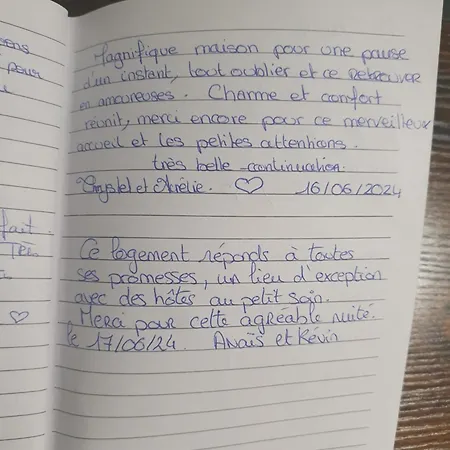 ens
pour
fait.
Magnifique maison pour une pause
d'un instant, tout oublier et ce retrouver
en amoureuses. Charme et comfort
réunit, merci encore pour ce merveilleux
accueil et les petites attentions.
très belle continuation.
Chrystel et Aurélie. ♡ 16/06/2024
Ce logement réponds à toutes
ses promesses, un lieu d'exception
avec des hôtes au petit soin.
Merci pour cette agréable nuité.
le 17/06/24. Anaïs et Kévin